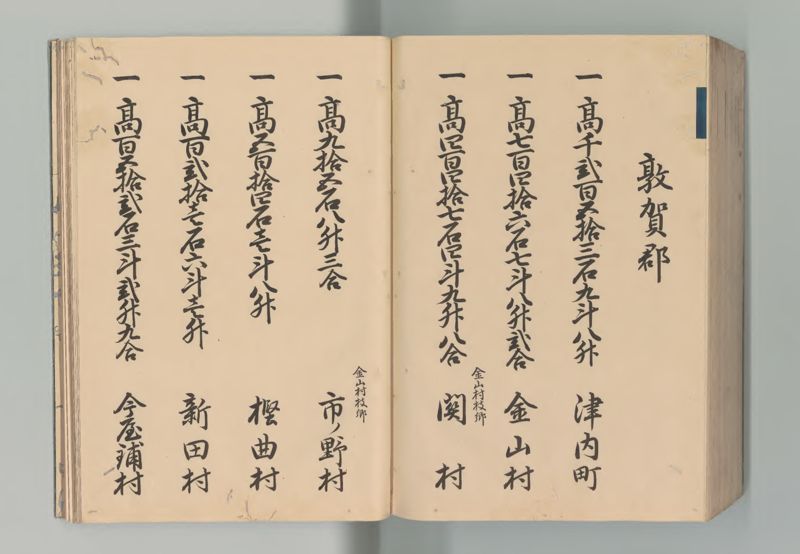 敦賀郡
一 髙千弐百五拾三石九斗八舛 津内町
一 髙七百四拾六石七斗八舛弐合 金山村
金山村枝郷
一 髙四百四拾七石四斗九舛八合 関村
金山村枝郷
一 髙九拾五石八舛三合 市ノ野村
一 髙五百拾四石壱斗八舛 樫曲村
一 髙百弐拾壱石六斗壱舛 新田村
一 髙百五拾弐石三斗弐舛九合 今屋鋪村